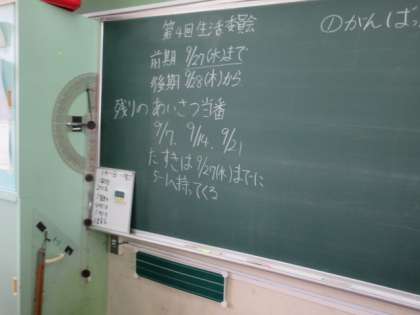 第4回生活委員会
前期 9/27(水)まで
後期 9/28(木)から
残りの あいさつ当番
9/7, 9/14, 9/21
たすきは9/27(水)までに
5-1へ持ってくる
①がんば